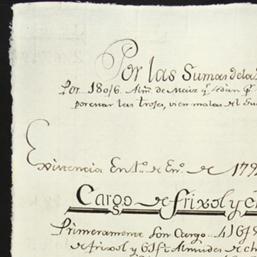 Por las Sumas dela
Por 180/6 Alms. de Maiz q. sedan q.
por enar las trojes, vien malas el Su
Existencia En 1o. de En.o de 179
Cargo de frixol y ch
Primeramente son Cargo 416f8
de frixol y 61f Almudes de ch